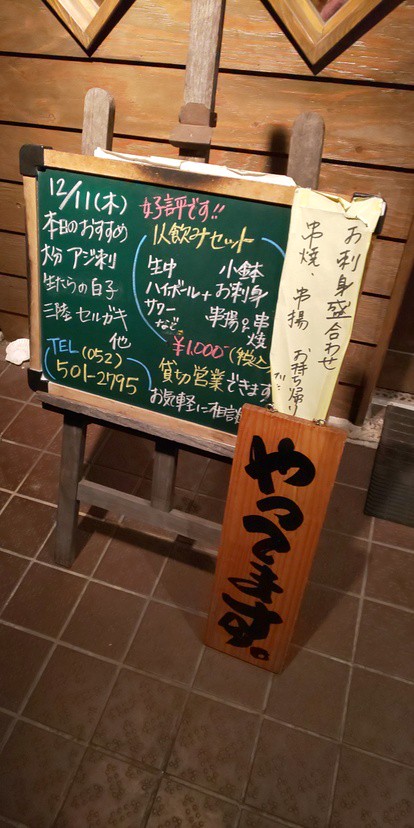 12/11(木)
本日のおすすめ
大分 アジ刺
生たらの白子
三陸 セルガキ
他
TEL (052)
501-2795
好評です!!
1人飲みセット
生中
ハイボール
サワー
など
+
小鉢
お刺身
串揚or串焼
¥1,000-(税込)
貸切営業できます
お気軽に相談
お刺身盛合わせ
串焼・串揚 お持ち帰り
やってます。